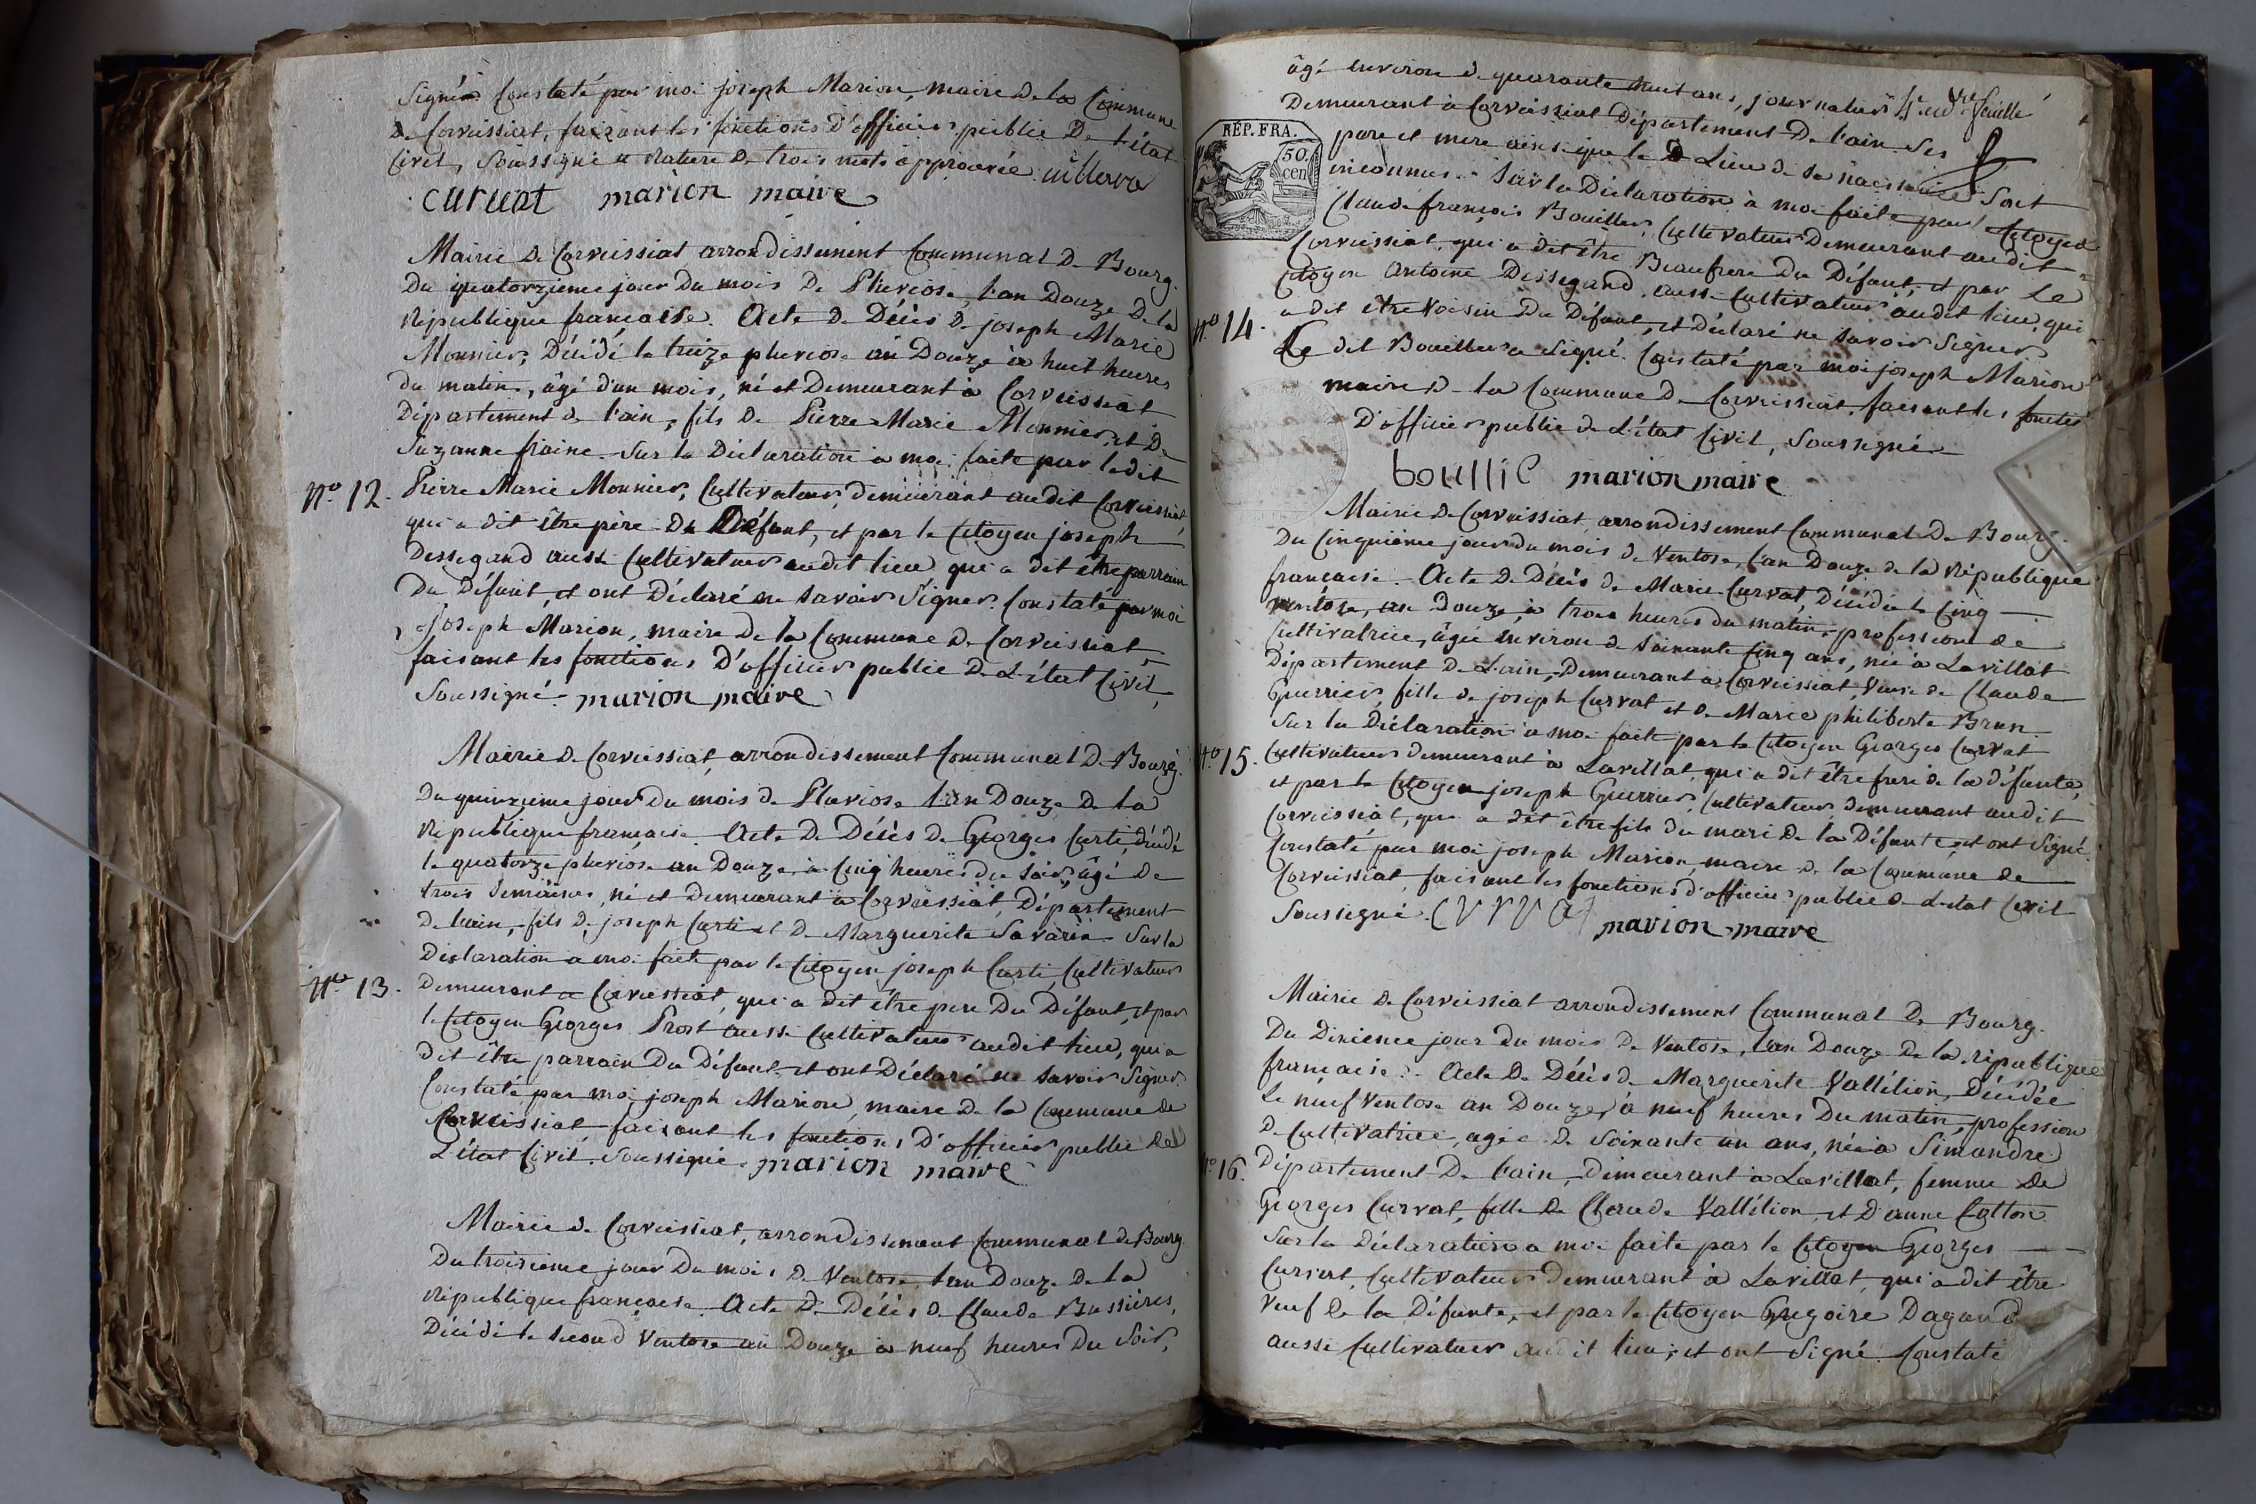 Signé. Constaté par moi joseph Marion, maire De la Commune
De Corveissiat, faisant les fonctions D'officier public De l'état
Civil, Soussigné a Rature De trois mots approuvée
curvat marion maire
Mairie De Corveissiat arrondissement Communal De Bourg.
Du quatorzieme jour Du mois De Pluviose, l'an Douze De la
République française. Acte De Décès De joseph Marie
Monnier, Décédé le treize pluviose an Douze à huit heures
du matin, âgé d'un mois, né et Demeurant à Corveissiat
Département de l'ain, fils De Pierre Marie Monnier, et De
Suzanne fraine. Sur la Déclaration a moi faite par ledit
N.º 12. Pierre Marie Monnier, Cultivateur demeurant audit Corveissiat
qui a dit être père Du Défunt, et par le Citoyen joseph
Dessegand aussi Cultivateur audit lieu qui a dit être parrain
Du Défunt, et ont Déclaré ne savoir Signer. Constaté par moi
joseph Marion, maire De la Commune De Corveissiat,
faisant les fonctions D'officier public De L'état Civil,
Soussigné. marion maire
Mairie De Corveissiat, arrondissement Communal De Bourg.
Du quinzieme jour Du mois De Pluviose l'an Douze De la
République française. Acte De Décès De Georges Carti, décédé
le quatorze pluviose an Douze, à Cinq heures du Soir, âgé de
trois Semaines, né et Demeurant à Corveissiat, Département
De l'ain, fils De joseph Carti et De Marguerite Savarin. Sur la
Déclaration a moi faite par le Citoyen joseph Carti, Cultivateur
N.º 13. Demeurant a Corveissiat, qui a dit être père Du Défunt, et par
le Citoyen Georges Prost aussi Cultivateur audit lieu, qui a
dit être parrain Du Défunt et ont Déclaré ne savoir Signer
Constaté par moi joseph Marion, maire De la Commune de
Corveissiat faisant les fonctions D'officier public De
L'état Civil. Soussigné. marion maire
Mairie De Corveissiat, arrondissement Communal De Bourg
Du troisieme jour Du mois De Ventose, l'an Douze De la
République française. Acte De Décès De Claude Bussières,
Décédé le second Ventose an Douze à neuf heures Du Soir,
âgé environ de quarante huit ans, journalier
Demeurant à Corveissiat Département De l'ain. Ses
RÉP. FRA.
50.
cen
père et mère ainsi que le Lieu de sa naissance Soit
inconnus. Sur la Déclaration à moi faite par Citoyen
Claude françois Bouiller, Cultivateur Demeurant audit
Corveissiat, qui a dit être Beaufrere Du Défunt, et par le
Citoyen antoine Dessegand, aussi Cultivateur audit lieu, qui
N.º 14. a dit être voisin Du Défunt, et Déclaré ne savoir Signer
Le dit Bouiller a Signé. Constaté par moi joseph Marion
maire De la Commune De Corveissiat, faisant les fonctions
D'officier public de L'état Civil, Soussigné.
marion maire
Mairie De Corveissiat, arrondissement Communal De Bourg.
Du Cinquieme jour Du mois de Ventose, l'an Douze de la République
française. Acte De Décès de Marie Curvat, Décédée le Cinq
ventose, an Douze, à trois heures du matin, profession de
Cultivatrice, âgée environ de Soixante Cinq ans, née à Lavillat
Département De L'ain, Demeurant à Corveissiat, Veuve de Claude
Guerrier, fille de joseph Curvat et De Marie philiberte Brun.
Sur la Déclaration à moi faite par le Citoyen Georges Curvat
N.º 15. Cultivateur demeurant à Lavillat, qui a dit être frere de la défunte,
et par le Citoyen joseph Guerrier, Cultivateur demeurant audit
Corveissiat, qui a dit être fils du mari De la Défunte et ont Signé.
Constaté par moi joseph Marion, maire de la Commune de
Corveissiat, faisant les fonctions d'officier public de L'état Civil
Soussigné. CVRVAT
marion maire
Mairie De Corveissiat arrondissement Communal De Bourg.
Du Dixieme jour Du mois De Ventose, l'an Douze De la république
française. Acte De Décès De Marguerite Vallélion, Décédée
Le neuf Ventose an Douze, à neuf heures Du matin, profession
De Cultivatrice, agée De Soixante un ans, née à Simandre
N.º 16. Département De l'ain, Demeurant à Lavillat, femme De
Georges Curvat, fille De Claude Vallélion, et D'anne Cotton
Sur la Déclaration a moi faite par le Citoyen Georges
Curvat, Cultivateur Demeurant à Lavillat, qui a dit être
Veuf De la Défunte, et par le Citoyen Gregoire Dagand
aussi Cultivateur audit lieu, et ont Signé. Constaté